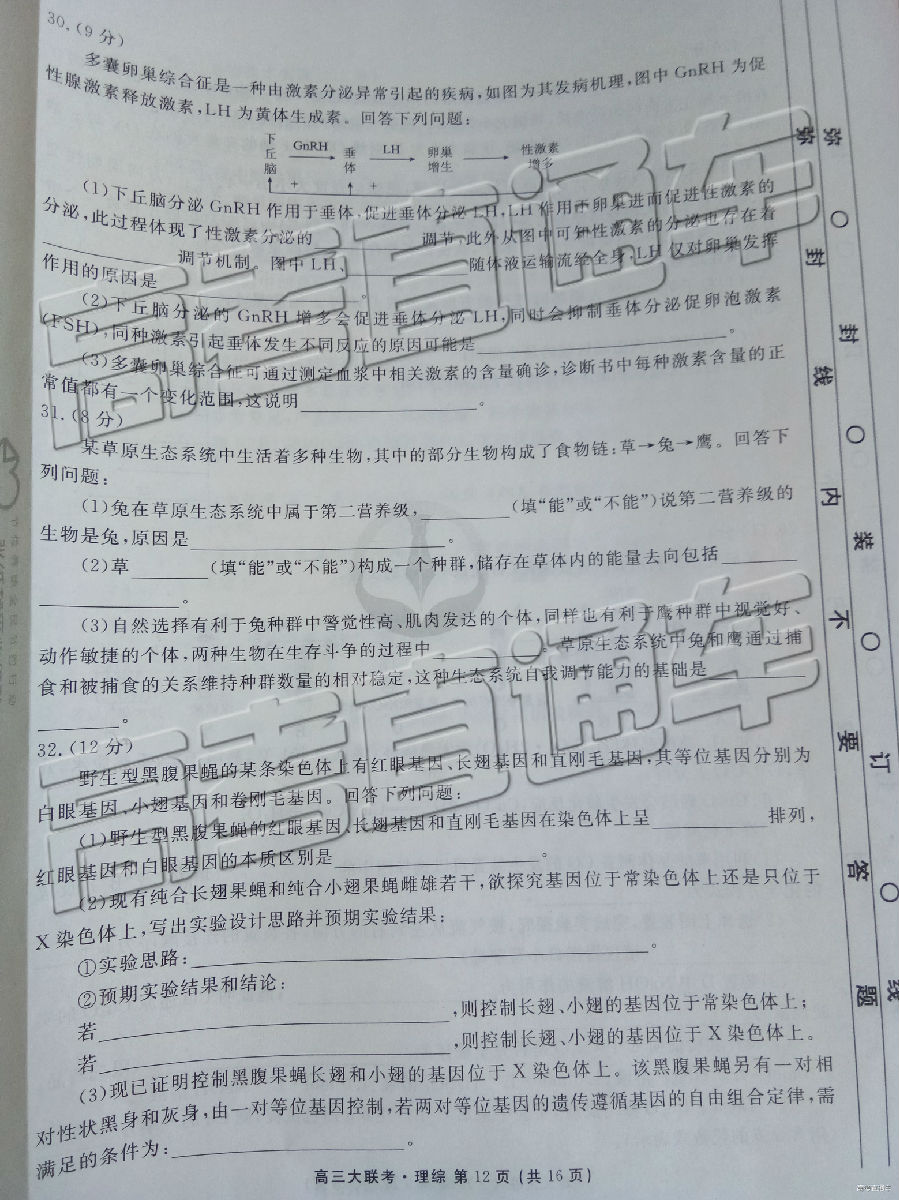 30.(9分)
多囊卵巢综合征是一种由激素分泌异常引起的疾病,如图为其发病机理,图中GnRH为促
性腺激素释放激素,LH为黄体生成素。回答下列问题:
下丘脑 GnRH 垂体 LH 卵巢增生 性激素增多
+ +
(1)下丘脑分泌GnRH作用于垂体,促进垂体分泌LH,LH作用于卵巢进而促进性激素的
分泌,此过程体现了性激素分泌的________调节,此外从图中可知性激素的分泌也存在着
________调节机制。图中LH、________随体液运输流经全身,LH仅对卵巢发挥
作用的原因是________。
(2)下丘脑分泌的GnRH增多会促进垂体分泌LH,同时会抑制垂体分泌促卵泡激素
(FSH),同种激素引起垂体发生不同反应的原因可能是________。
(3)多囊卵巢综合征可通过测定血浆中相关激素的含量确诊,诊断书中每种激素含量的正
常值都有一个变化范围,这说明________。
31.(8分)
某草原生态系统中生活着多种生物,其中的部分生物构成了食物链:草→兔→鹰。回答下
列问题:
(1)兔在草原生态系统中属于第二营养级,________(填“能”或“不能”)说第二营养级的
生物是兔,原因是________。
(2)草________(填“能”或“不能”)构成一个种群,储存在草体内的能量去向包括________
________。
(3)自然选择有利于兔种群中警觉性高、肌肉发达的个体,同样也有利于鹰种群中视觉好、
动作敏捷的个体,两种生物在生存斗争的过程中________。草原生态系统中兔和鹰通过捕
食和被捕食的关系维持种群数量的相对稳定,这种生态系统自我调节能力的基础是________
________。
32.(12分)
野生型黑腹果蝇的某条染色体上有红眼基因、长翅基因和直刚毛基因,其等位基因分别为
白眼基因、小翅基因和卷刚毛基因。回答下列问题:
(1)野生型黑腹果蝇的红眼基因、长翅基因和直刚毛基因在染色体上呈________排列,
红眼基因和白眼基因的本质区别是________。
(2)现有纯合长翅果蝇和纯合小翅果蝇雌雄若干,欲探究基因位于常染色体上还是只位于
X染色体上,写出实验设计思路并预期实验结果:
①实验思路:________。
②预期实验结果和结论:
若________,则控制长翅、小翅的基因位于常染色体上;
若________,则控制长翅、小翅的基因位于X染色体上。
(3)现已证明控制黑腹果蝇长翅和小翅的基因位于X染色体上。该黑腹果蝇另有一对相
对性状黑身和灰身,由一对等位基因控制,若两对等位基因的遗传遵循基因的自由组合定律,需
满足的条件为:________。
高三大联考·理综 第12页(共16页)
弥 封 线 内 不 要 答 题
弥 ○ 封 ○ 装 ○ 订 ○ 线
高考直通车
高考直通车